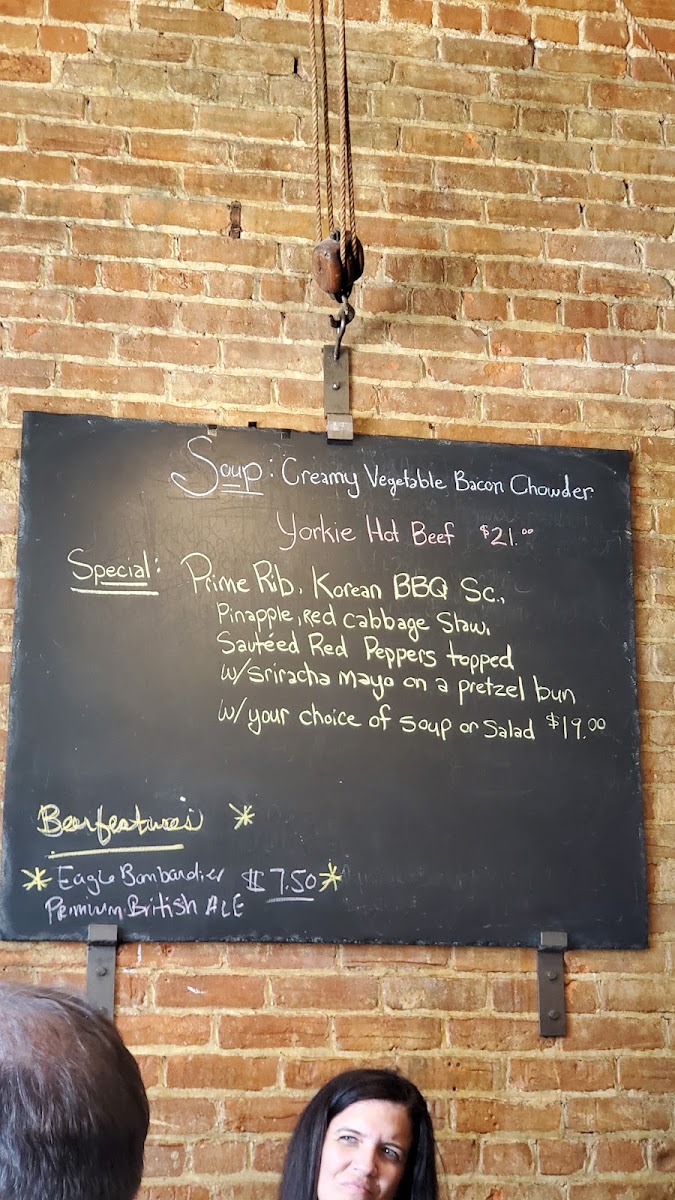 Soup: Creamy Vegetable Bacon Chowder
Yorkie Hot Beef $21.00
Special: Prime Rib, Korean BBQ Sc.,
Pinapple, Red Cabbage Slaw,
Sautéed Red Peppers topped
w/sriracha mayo on a pretzel bun
w/ your choice of soup or Salad $19.00
Beerfeatures
Eagle Bombardier $7.50
Premium British ALE